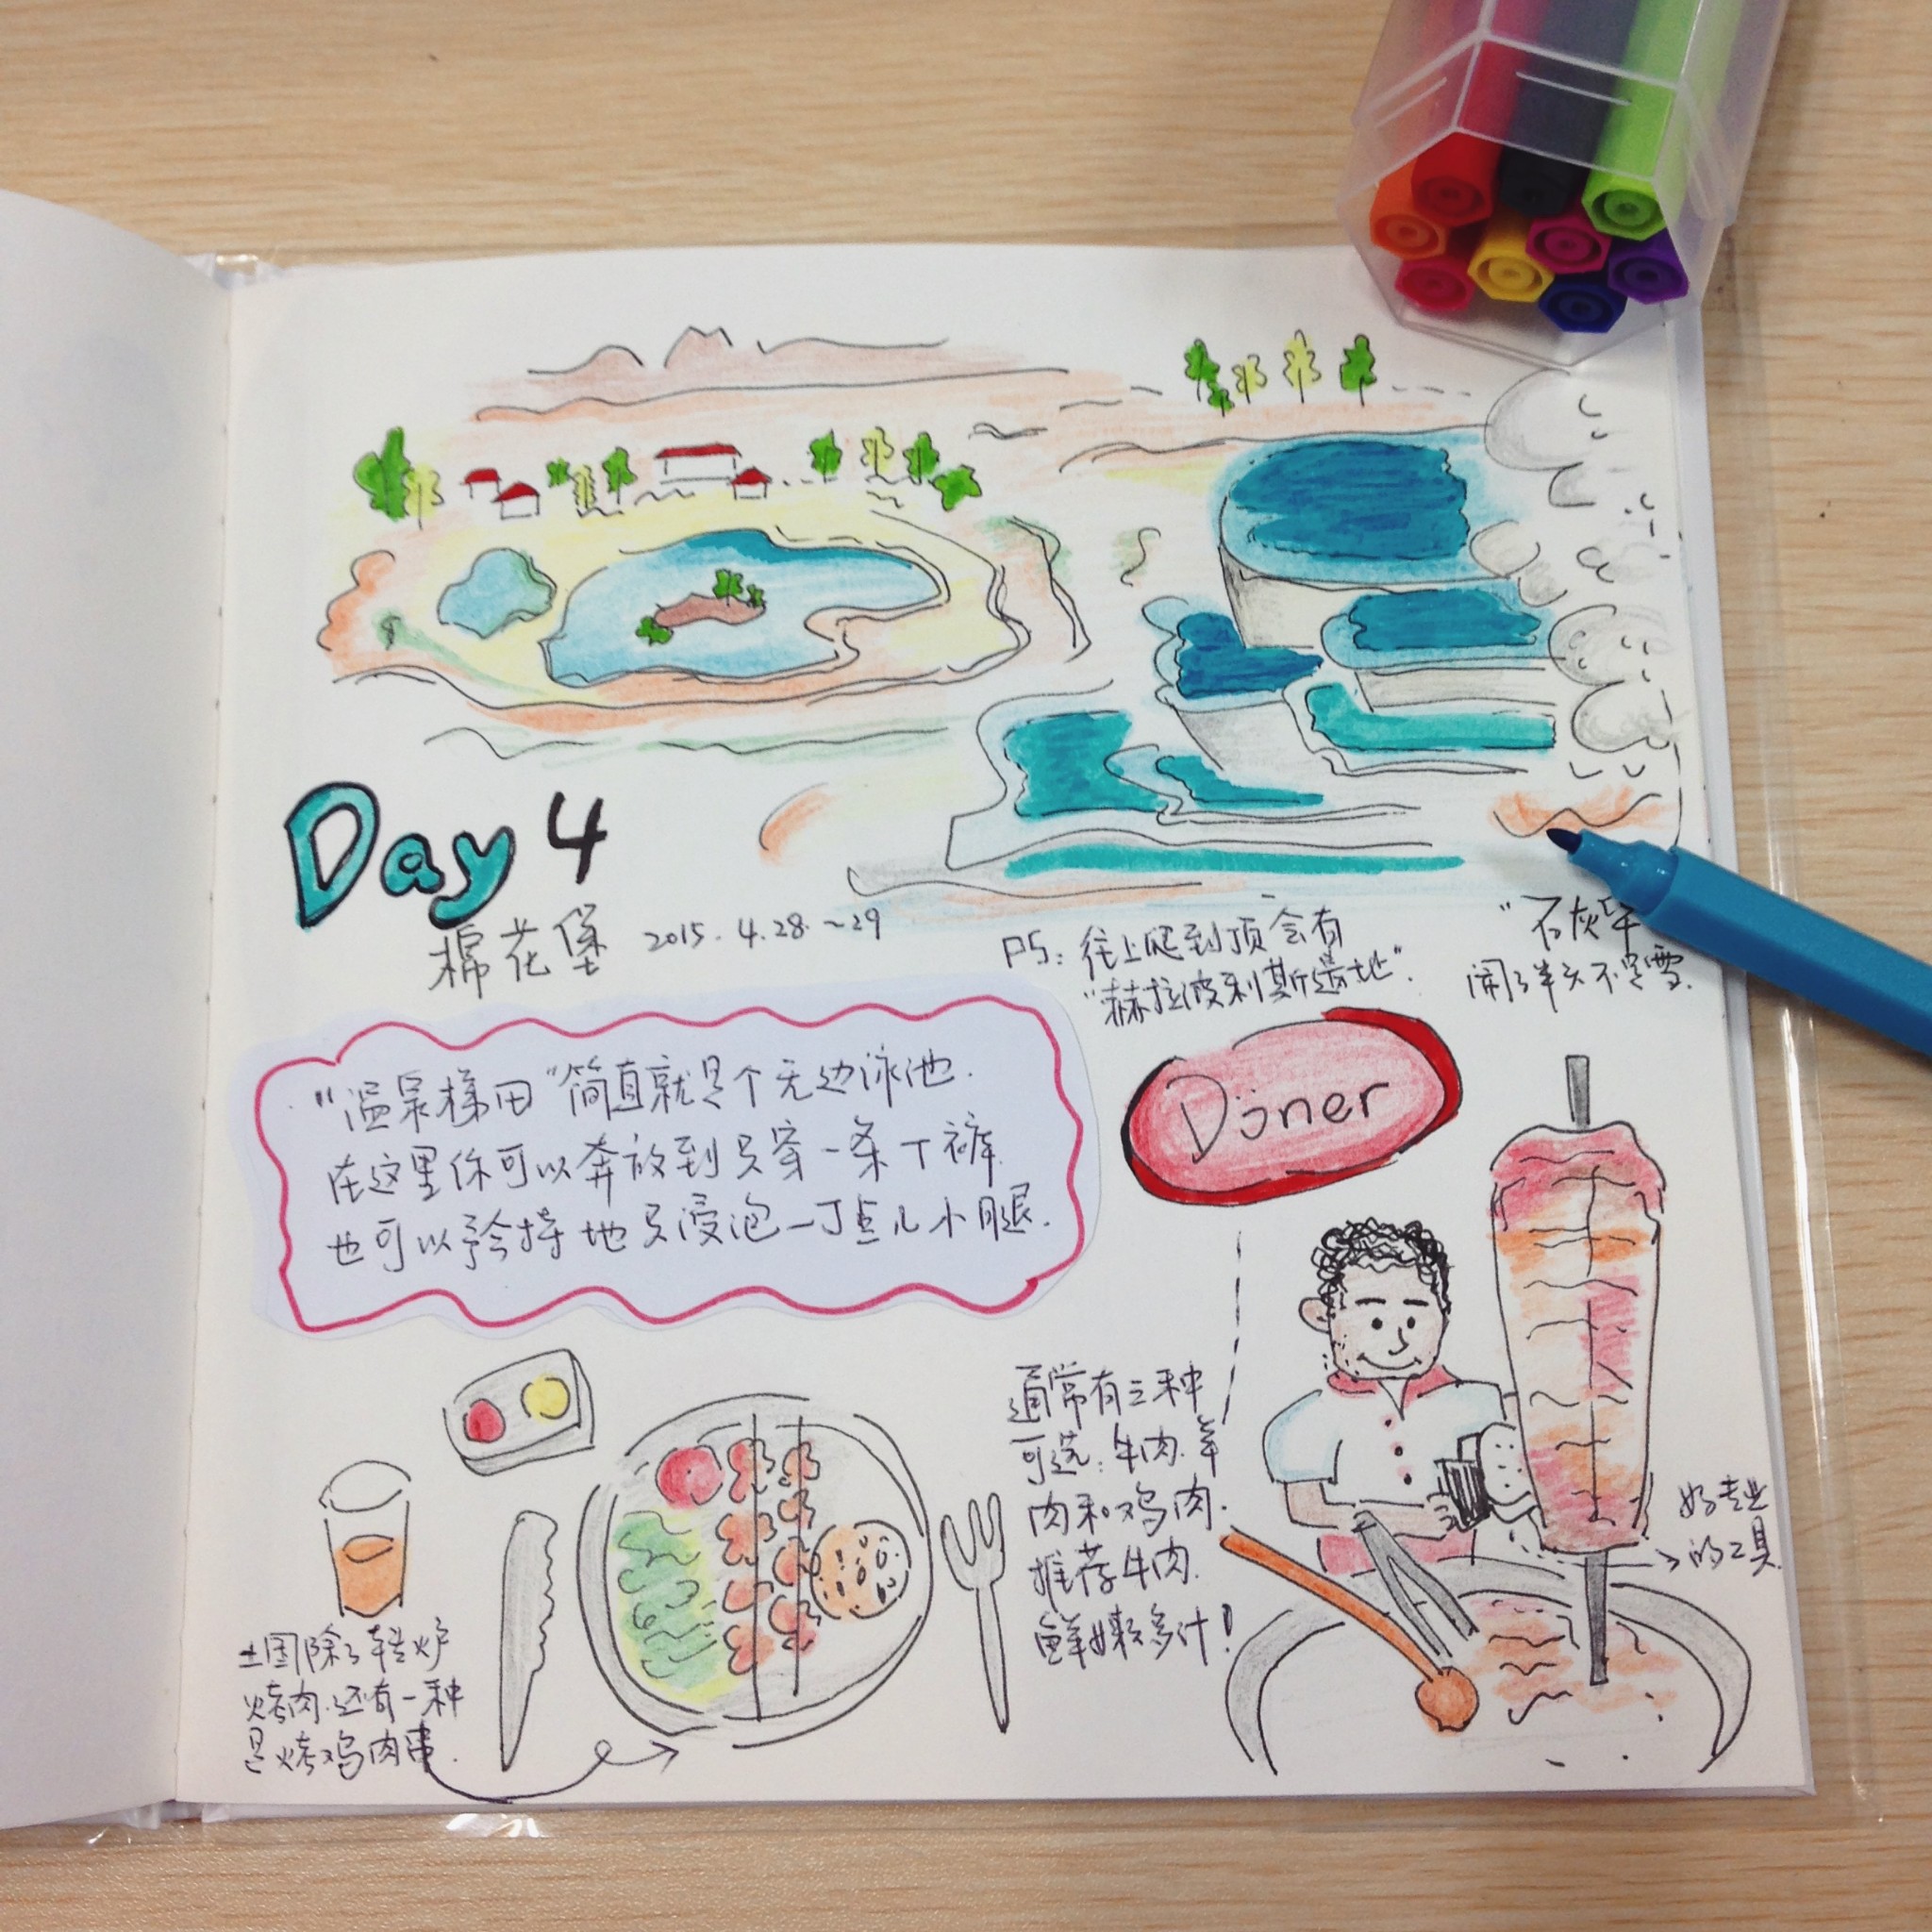 Day 4
棉花堡 2015.4.28.~29
PS: 往上爬到顶会有
"赫拉波利斯遗地".
"石灰
闹了半天不是雪.
"温泉梯田"简直就是个无边泳池.
在这里你可以奔放到只穿一条丁裤
也可以矜持地只浸泡一丁点儿小腿.
Döner
通常有三种
可选:牛肉.羊
肉和鸡肉.
推荐牛肉.
鲜嫩多汁!
好专业
的工具.
土国除了转炉
烤肉.还有一种
是烤鸡肉串.